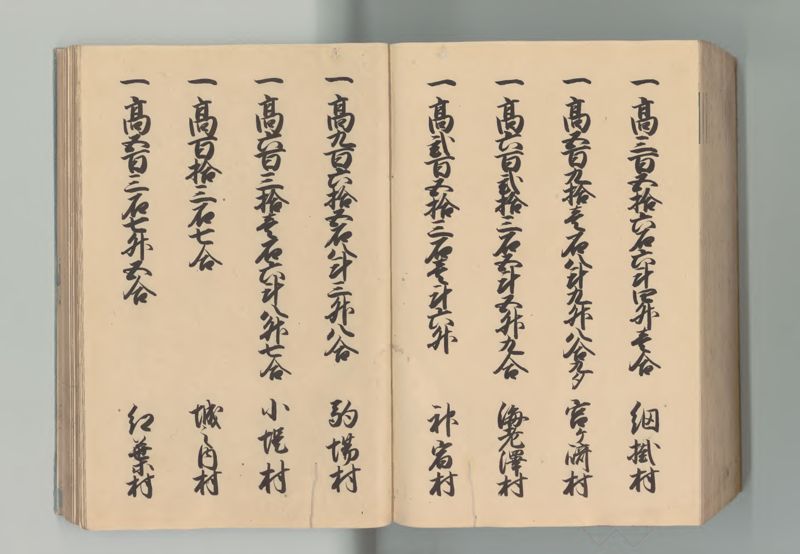 一高三百五拾六石六斗四升壱合 網掛村
一高五百九拾壱石八斗九升八合九夕 宮ケ崎村
一高六百弐拾三石五斗五升九合 海老澤村
一高弐百五拾三石壱斗六升 神宿村
一高九百六拾五石八斗三升八合 駒場村
一高六百三拾壱石六斗八升七合 小堤村
一高百拾三石七合 城之内村
一高五百三石七升五合 紅葉村